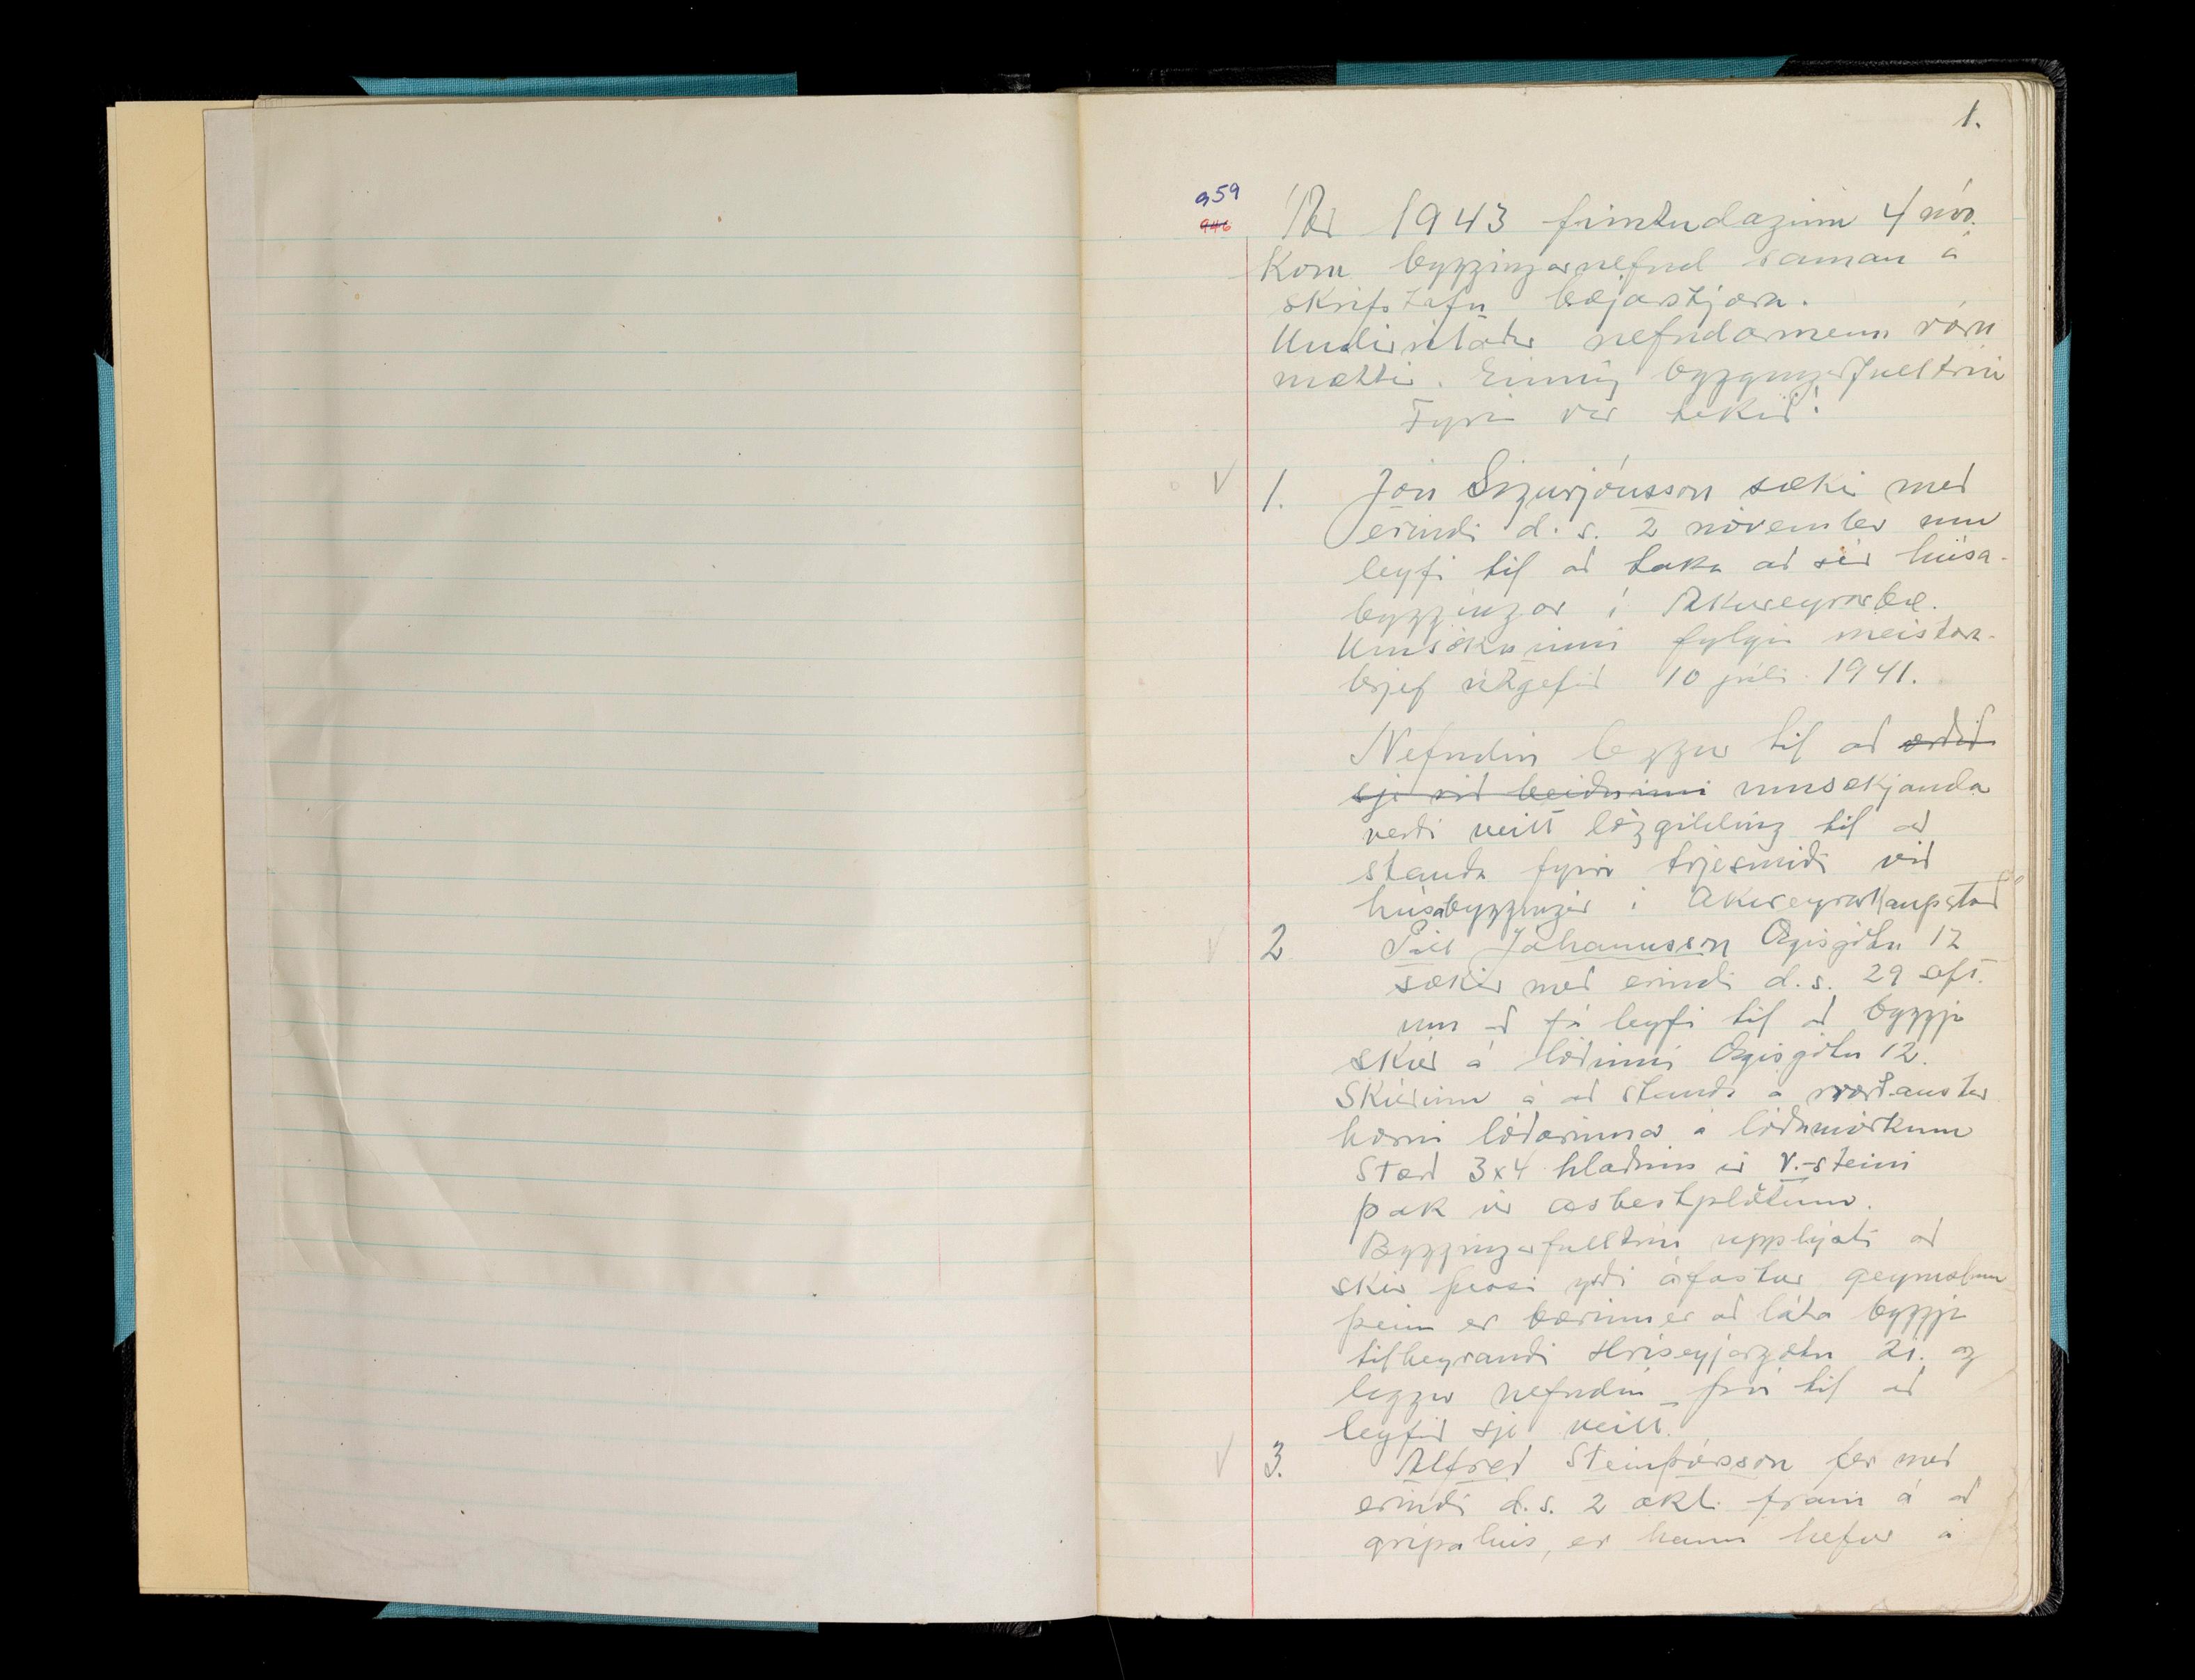 1.
959
946
Ár 1943 fimtudaginn 4 nóv.
kom byggingarnefnd saman á
skrifstofu bæjarstjóra.
Undirritaðir nefndarmenn voru
mættir. Einnig byggingafulltrúi
Fyrir var tekið:
1. Jón Sigurjónsson sækir með
erindi d.s. 2 nóvember um
leyfi til að taka að sér húsa-
byggingar í Akureyrarbæ.
Umsókninni fylgir meistara-
brjef útgefið 10 júli 1941.
Nefndin leggur til að orðið
sje við beiðninni umsækjanda
verði veitt löggilding til að
standa fyrir trjesmíði við
húsabyggingar í Akureyrarkaupstað
2 Páll Jóhannsson Ægisgötu 12
sækir með erindi d.s. 29 sept.
um að fá leyfi til að byggja
skúr á lóðinni Ægisgötu 12.
Skúrinn á að standa á norðaustur
horni lóðarinnar á lóðamörkum
Stærð 3x4 hlaðinn úr r.-steini
þak úr asbestplötum.
Byggingafulltrúi upplýsti að
skúr þessi yrði áfastur geymslum
þeim er bærinn er að láta byggja
tilheyrandi Hríseyjargötu 21. og
leggur nefndin því til að
leyfið sje veitt.
3. Alfred Steinþórsson fer með
erindi d.s. 2 okt. fram á að
gripahús, er hann hefur á